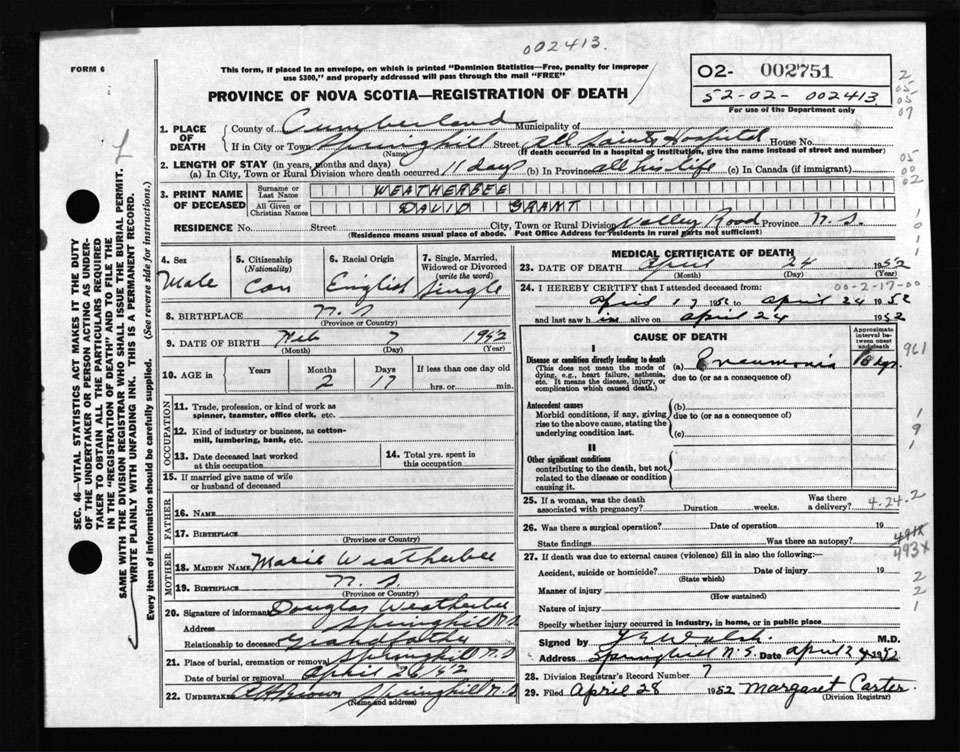 002413.
FORM 6
This form, if placed in an envelope, on which is printed "Dominion Statistics—Free, penalty for improper
use $300," and properly addressed will pass through the mail "FREE"
02- 002751
52-02- 002413
For use of the Department only
PROVINCE OF NOVA SCOTIA—REGISTRATION OF DEATH
2-
05-
05-
07
1. PLACE OF DEATH
County of Cumberland Municipality of
If in City or Town Springhill Street All Saints Hospital House No.
(Name) (If death occurred in a hospital or institution, give the name instead of street and number)
2. LENGTH OF STAY (in years, months and days)
(a) In City, Town or Rural Division where death occurred 11 days (b) In Province all his life (c) In Canada (if immigrant)
05
00
02
3. PRINT NAME OF DECEASED
Surname or Last Name WEATHERBEE
All Given or Christian Names DAVID GRANT
RESIDENCE No. Street City, Town or Rural Division Valley Road Province N.S.
(Residence means usual place of abode. Post Office Address for residents in rural parts not sufficient)
4. Sex Male
5. Citizenship (Nationality) Can
6. Racial Origin English
7. Single, Married, Widowed or Divorced (write the word) Single
8. BIRTHPLACE N.S
(Province or Country)
9. DATE OF BIRTH Feb 7 1952
(Month) (Day) (Year)
10. AGE in Years Months Days If less than one day old
2 17 hrs. or min.
OCCUPATION
11. Trade, profession, or kind of work as
spinner, teamster, office clerk, etc.
12. Kind of industry or business, as cotton-
mill, lumbering, bank, etc.
13. Date deceased last worked
at this occupation
14. Total yrs. spent in
this occupation
15. If married give name of wife
or husband of deceased
FATHER
16. NAME
17. BIRTHPLACE
(Province or Country)
MOTHER
18. MAIDEN NAME Marie Weatherbee
19. BIRTHPLACE N.S
(Province or Country)
20. Signature of informant Douglas Weatherbee
Address Springhill N.S
Relationship to deceased Grandfather
21. Place of burial, cremation or removal Springhill N.S
Date of burial or removal April 26/52
22. UNDERTAKER Brown Springhill N.S
(Name and address)
MEDICAL CERTIFICATE OF DEATH
23. DATE OF DEATH April 24 1952
(Month) (Day) (Year)
24. I HEREBY CERTIFY that I attended deceased from: 00-2-17-00
April 17 1952 to April 24 1952
and last saw him alive on April 24 1952
CAUSE OF DEATH
Approximate interval between onset and death
I
Disease or condition directly leading to death
(This does not mean the mode of
dying, e.g., heart failure, asthenia,
etc. It means the disease, injury, or
complication which caused death.)
(a) Pneumonia
due to (or as a consequence of)
961
Antecedent causes
Morbid conditions, if any, giving
rise to the above cause, stating the
underlying condition last.
(b)
due to (or as a consequence of)
(c)
II
Other significant conditions
contributing to the death, but not
related to the disease or condition
causing it.
25. If a woman, was the death
associated with pregnancy? Duration weeks. Was there a delivery? 4-24-2
26. Was there a surgical operation? Date of operation 19
State findings Was there an autopsy?
491X
493X
27. If death was due to external causes (violence) fill in also the following:—
Accident, suicide or homicide? Date of injury 19
(State which)
Manner of injury
(How sustained)
Nature of injury
Specify whether injury occurred in industry, in home, or in public place
Signed by Walsh M.D.
Address Springhill N.S. Date April 24 1952
28. Division Registrar's Record Number 7
29. Filed April 28 1952 Margaret Carter.
(Division Registrar)
SEC. 46—VITAL STATISTICS ACT MAKES IT THE DUTY
OF THE UNDERTAKER OR PERSON ACTING AS UNDER-
TAKER TO OBTAIN ALL THE PARTICULARS REQUIRED
IN THE "REGISTRATION OF DEATH" AND TO FILE THE
SAME WITH THE DIVISION REGISTRAR WHO SHALL ISSUE THE BURIAL PERMIT.
WRITE PLAINLY WITH UNFADING INK. THIS IS A PERMANENT RECORD.
Every item of information should be carefully supplied. (See reverse side for instructions.)